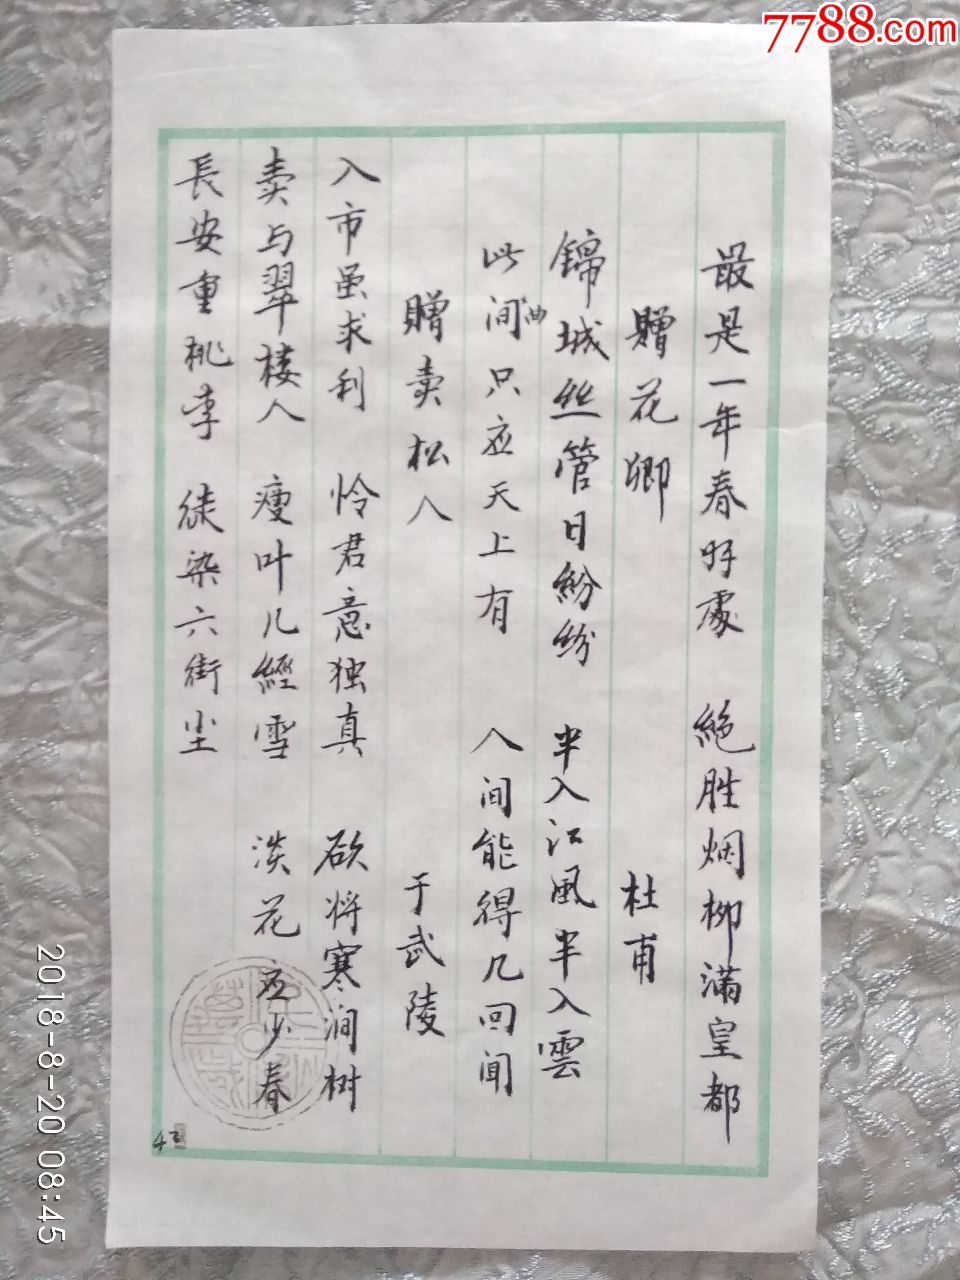 7788.com
最是一年春好處 絶胜烟柳滿皇都
贈花卿 杜甫
錦城丝管日紛紛 半入江風半入雲
此间曲只应天上有 人间能得几回闻
贈卖松人 于武陵
入市虽求利 怜君意独真 欲将寒涧树
卖与翠楼人 瘦叶几經雪 淡花应少春
長安重桃李 徒染六街尘
2018-8-20 08:45